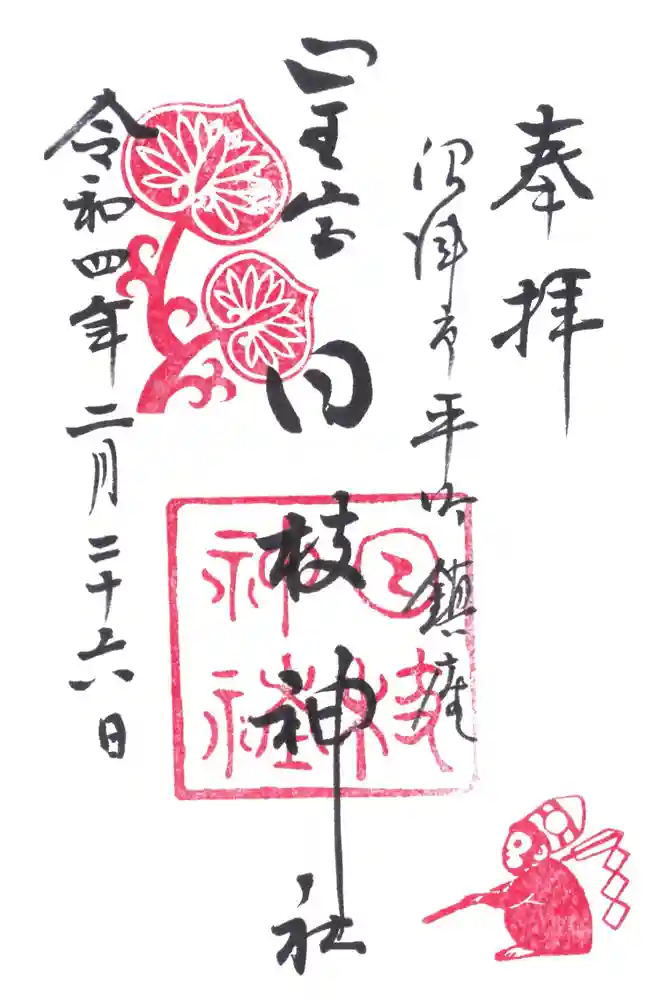 奉拝
沼津市平町鎮座
山王宮
日枝神社
日枝神社
令和四年二月二十六日